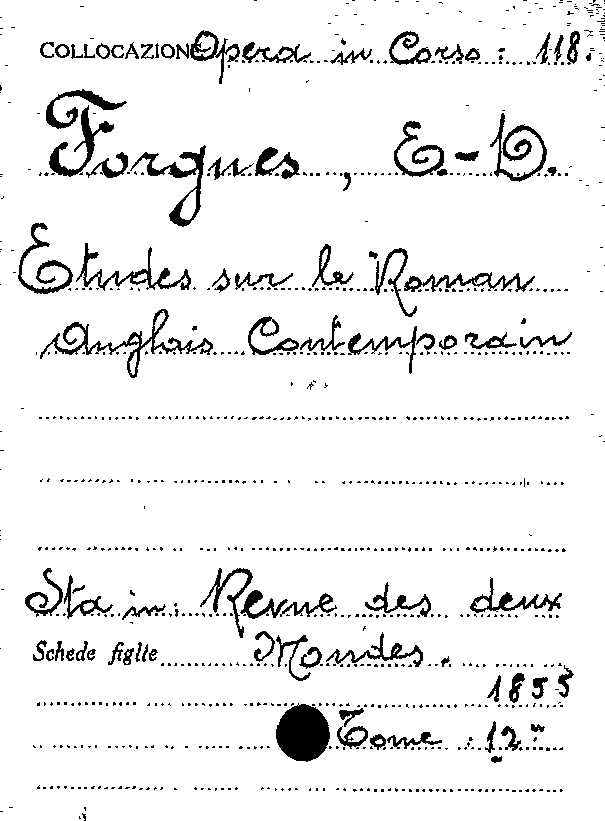 COLLOCAZIONE Opera in Corso : 118.
Forgues, E.-D.
Etudes sur le Roman
Anglais Contemporain
Sta in: Revue des deux
Schede figlie Mondes.
1855
Tome : 12"